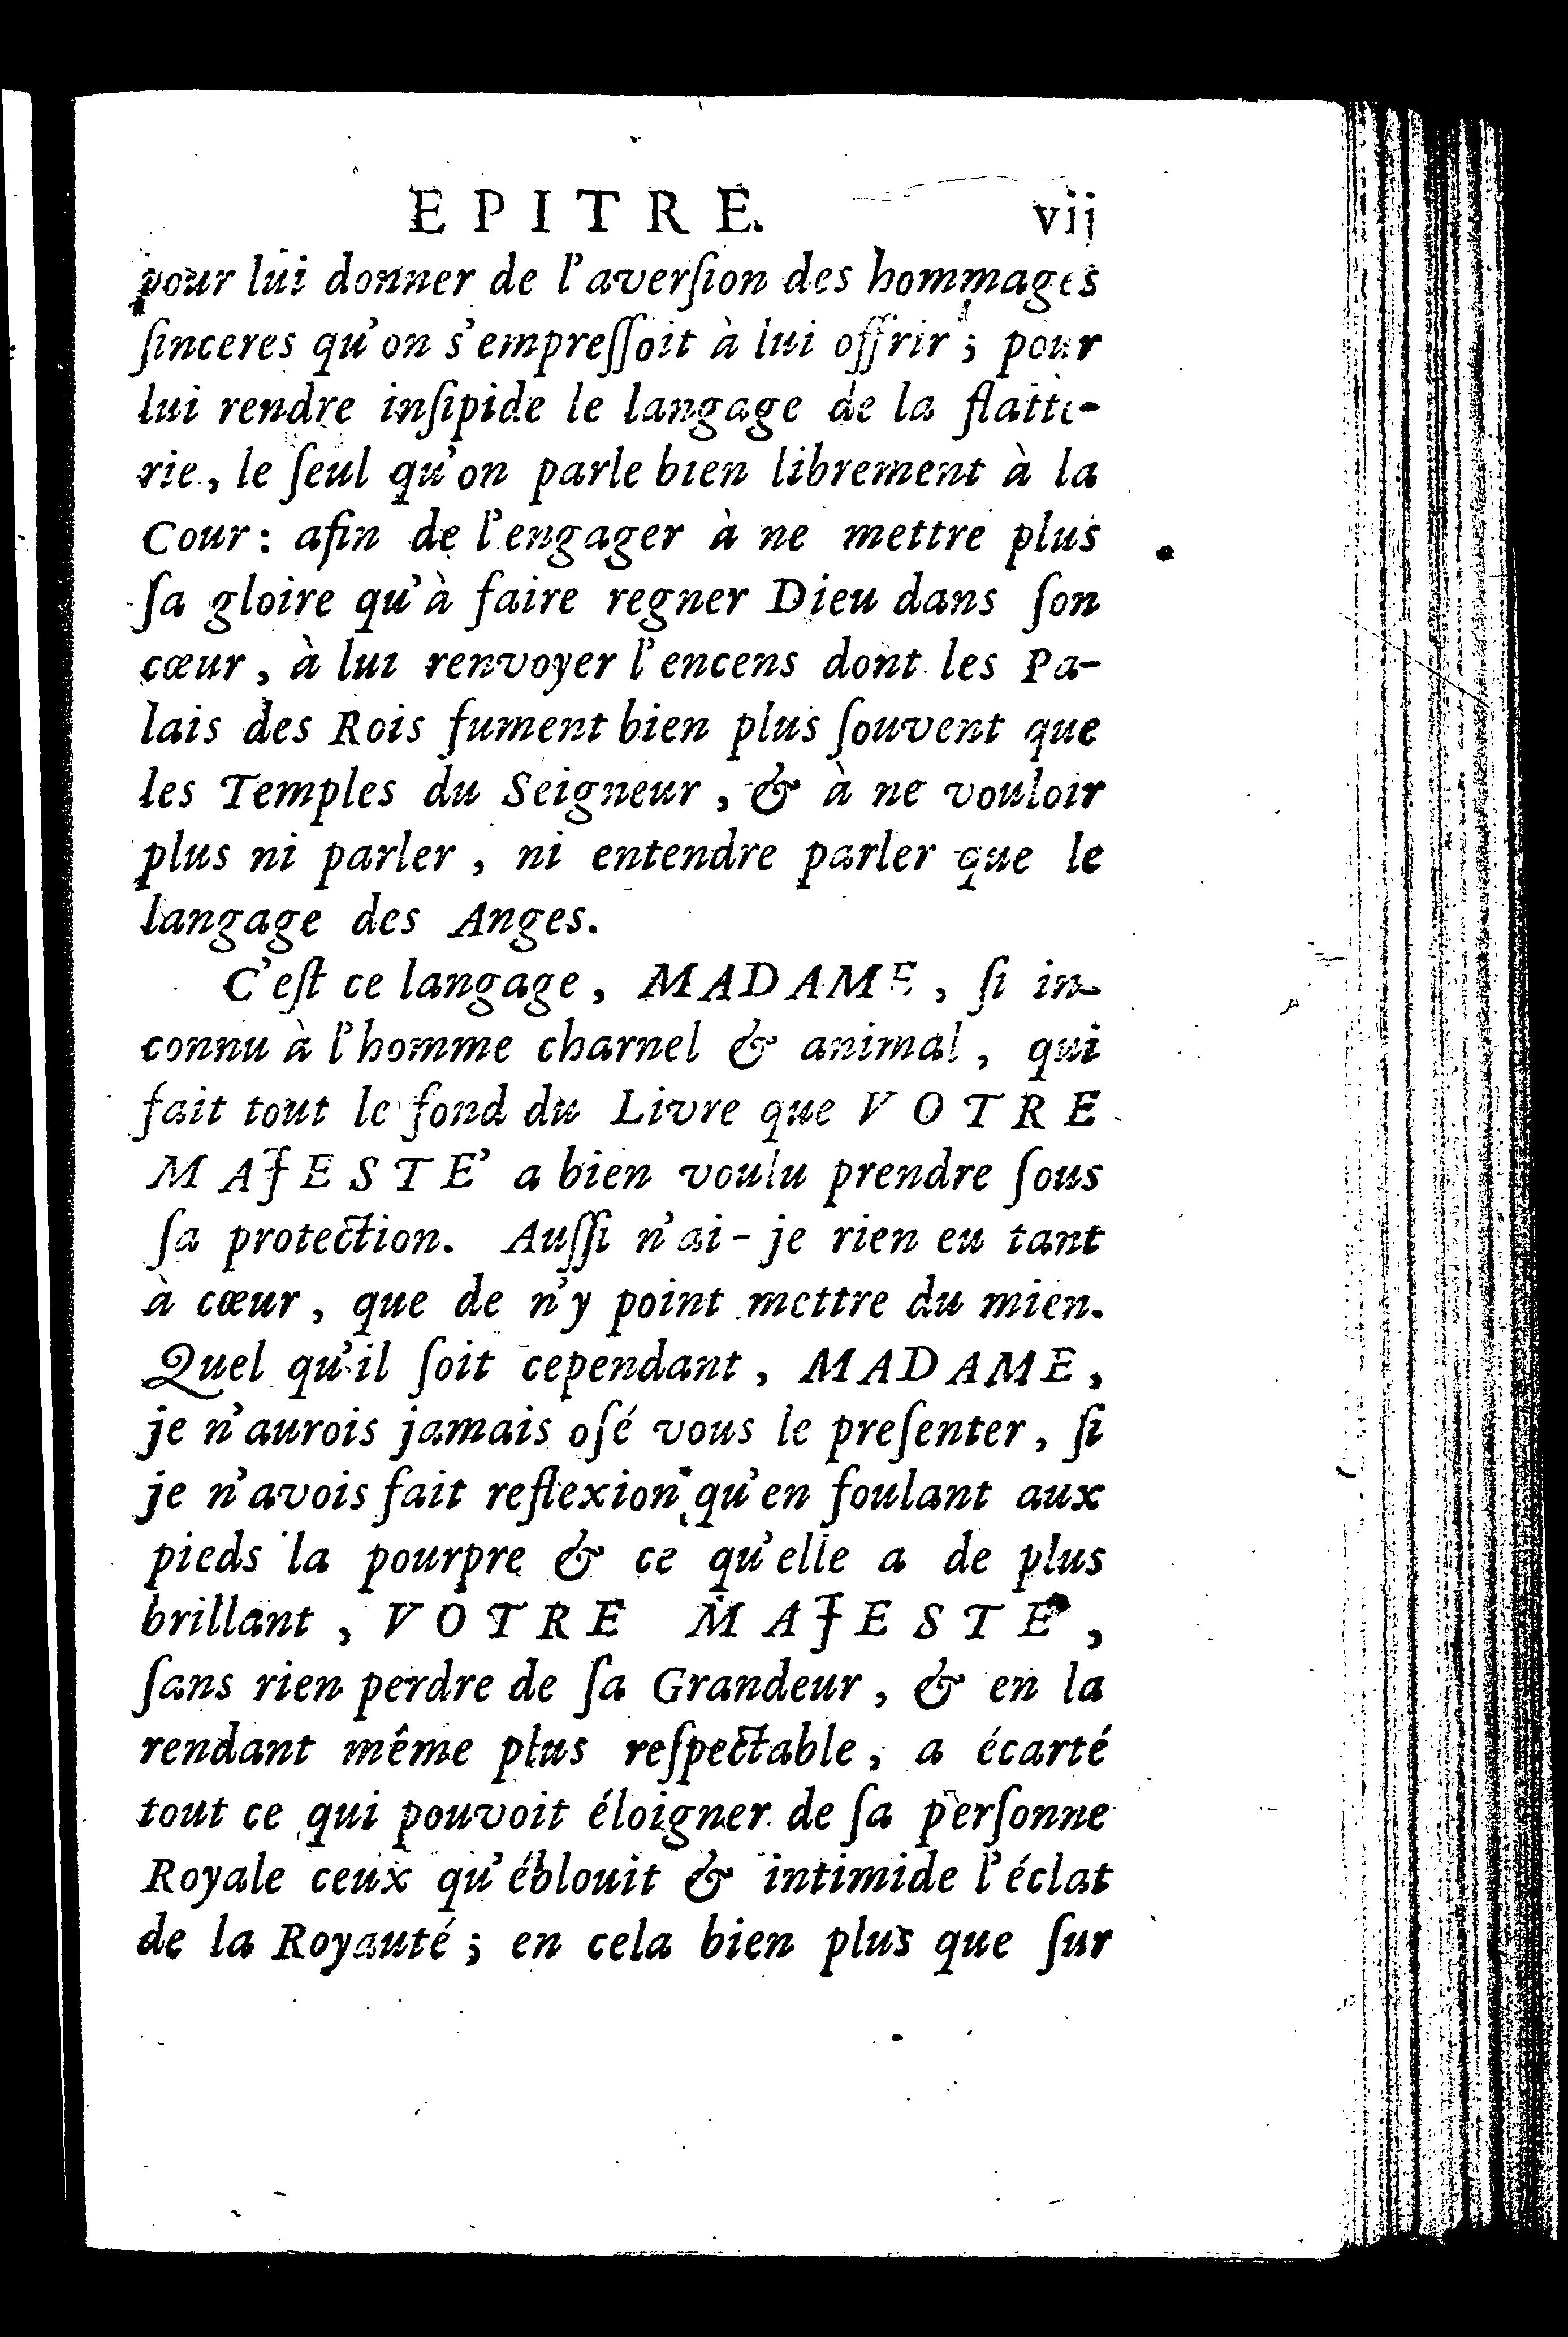 EPITRE. vij
pour lui donner de l'averſion des hommages
ſinceres qu'on s'empreſſoit à lui offrir ; pour
lui rendre inſipide le langage de la flatte-
rie, le ſeul qu'on parle bien librement à la
Cour : afin de l'engager à ne mettre plus
ſa gloire qu'à faire regner Dieu dans ſon
cœur, à lui renvoyer l'encens dont les Pa-
lais des Rois fument bien plus ſouvent que
les Temples du Seigneur, & à ne vouloir
plus ni parler, ni entendre parler que le
langage des Anges.
C'eſt ce langage, MADAME, ſi in-
connu à l'homme charnel & animal, qui
fait tout le fond du Livre que VOTRE
MAJESTE' a bien voulu prendre ſous
ſa protection. Auſſi n'ai-je rien eu tant
à cœur, que de n'y point mettre du mien.
Quel qu'il ſoit cependant, MADAME,
je n'aurois jamais oſé vous le preſenter, ſi
je n'avois fait reflexion qu'en foulant aux
pieds la pourpre & ce qu'elle a de plus
brillant, VOTRE MAJESTE',
ſans rien perdre de ſa Grandeur, & en la
rendant même plus reſpectable, a écarté
tout ce qui pouvoit éloigner de ſa perſonne
Royale ceux qu'éblouit & intimide l'éclat
de la Royauté ; en cela bien plus que ſur